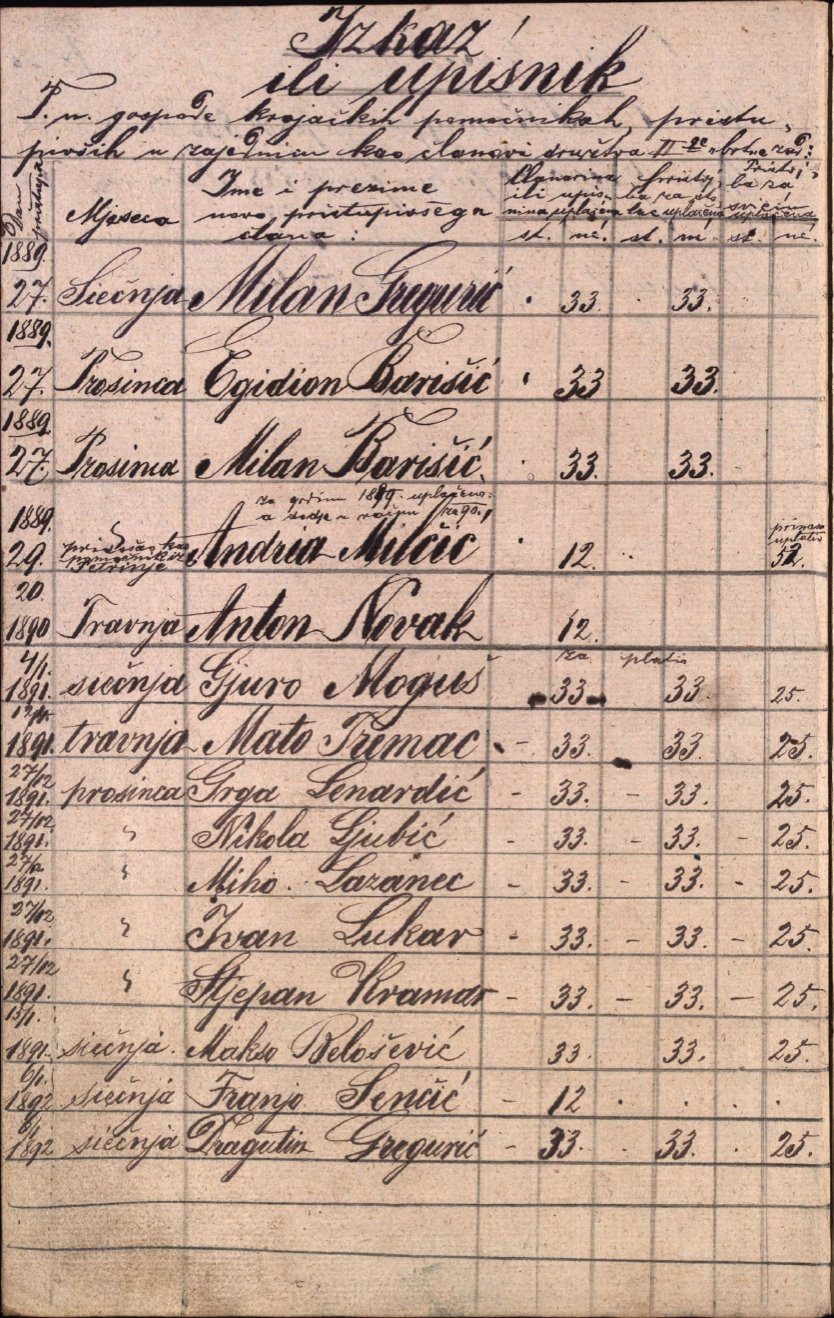 Izkaz
ili upisnik
T. n. gospode krojačkih pomoćnikah, pristu„
pivših u zajednicu kao članovi družtva II ge obrtne zad:
Dan pristupa
Mjeseca
Ime i prezime
novo pristupivšega
člana:
Članarina
ili upis„
nina uplaćena
Pristoj
ba za
uplaćena
Pristoj„
ba za
uplaćena
st. nč. st. nč. st. nč.
1889.
27. Siečnja Milan Gregurić . 33. 33.
1889.
27. Prosinca Egidion Barišić . 33 33.
1889
27. Prosinca Milan Barišić . 33. 33.
za godinu 1889. uplaćeno
1889.
29. Andria Milčić 12. 52.
20.
1890 Travnja Anton Novak 12.
za platio
4/1.
1891. siečnja Gjuro Moguš 33 33. 25.
1891. travnja Mato Tremac - 33. 33. 25.
27/12
1891. prosinca Grga Lenardić - 33. - 33. 25.
27/12
1891. " Nikola Ljubić - 33. - 33. - 25.
27/12
1891. " Miho Lazanec - 33. - 33. - 25.
27/12
1891. " Ivan Lukar - 33. - 33. - 25.
27/12
1891. " Stjepan Kramar - 33. - 33. - 25.
15/1.
1891. siečnja. Makso Belošević 33. 33. 25.
6/1.
1892 siečnja Franjo Senčić - 12 . . . .
6/1
1892 siečnja Dragutin Gregurić - 33. . 33. . 25.